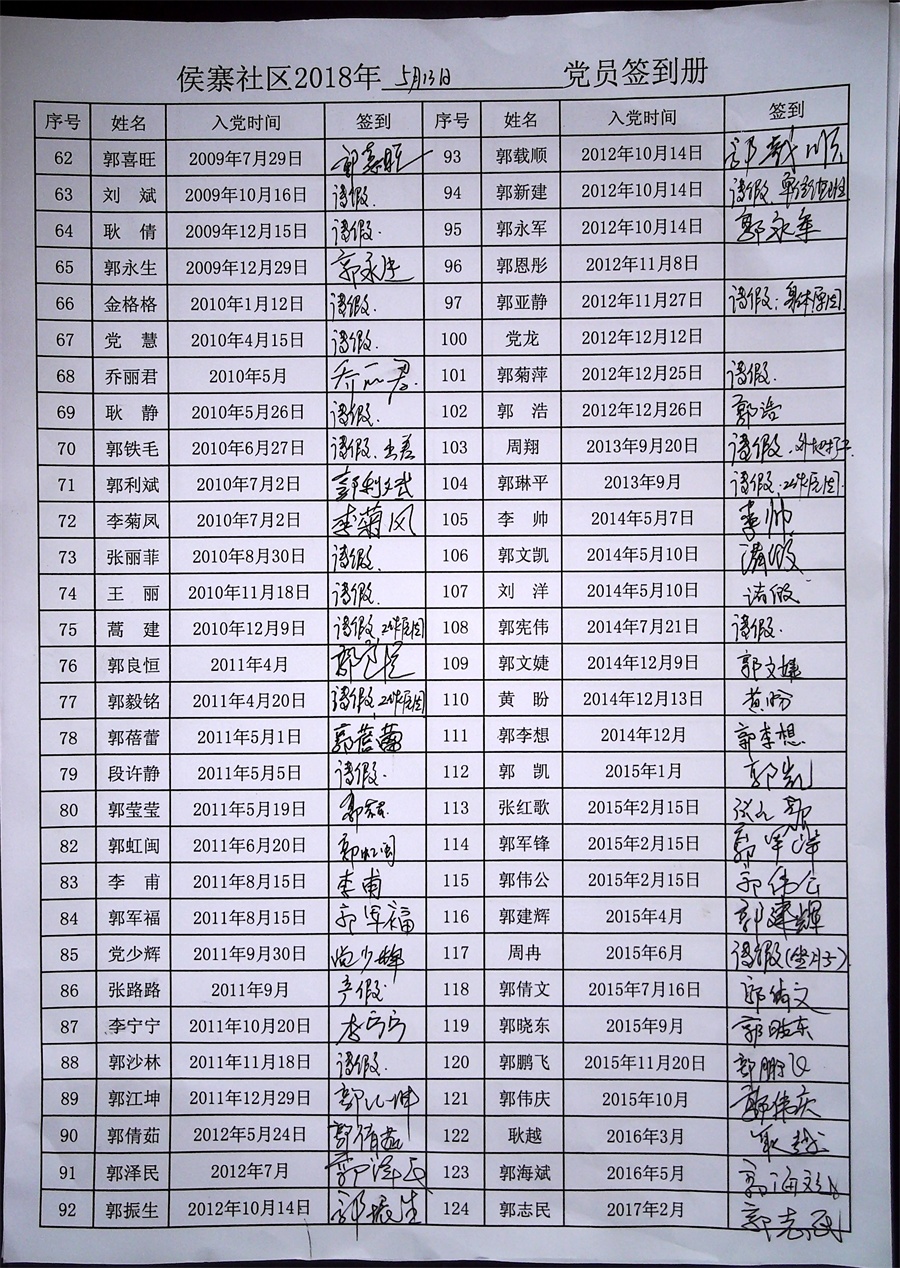 侯寨社区2018年 5月13日 党员签到册
序号 姓名 入党时间 签到 序号 姓名 入党时间 签到
62 郭喜旺 2009年7月29日 93 郭载顺 2012年10月14日 郭载顺
63 刘 斌 2009年10月16日 请假. 94 郭新建 2012年10月14日 请假.
64 耿 倩 2009年12月15日 请假. 95 郭永军 2012年10月14日 郭永军
65 郭永生 2009年12月29日 郭永生 96 郭恩彤 2012年11月8日
66 金格格 2010年1月12日 请假. 97 郭亚静 2012年11月27日 请假:身体原因
67 党 慧 2010年4月15日 请假. 100 党龙 2012年12月12日
68 乔丽君 2010年5月 乔丽君 101 郭菊萍 2012年12月25日 请假.
69 耿 静 2010年5月26日 请假. 102 郭 浩 2012年12月26日 郭浩
70 郭铁毛 2010年6月27日 请假.出差 103 周翔 2013年9月20日 请假.外地
71 郭利斌 2010年7月2日 郭利斌 104 郭琳平 2013年9月 请假.工作原因
72 李菊凤 2010年7月2日 李菊凤 105 李 帅 2014年5月7日 李帅
73 张丽菲 2010年8月30日 请假. 106 郭文凯 2014年5月10日 请假
74 王 丽 2010年11月18日 请假. 107 刘 洋 2014年5月10日 请假
75 蒿 建 2010年12月9日 请假 工作原因 108 郭宪伟 2014年7月21日 请假.
76 郭良恒 2011年4月 郭良恒 109 郭文婕 2014年12月9日 郭文婕
77 郭毅铭 2011年4月20日 请假 工作原因 110 黄 盼 2014年12月13日 黄盼
78 郭蓓蕾 2011年5月1日 郭蓓蕾 111 郭李想 2014年12月 郭李想
79 段许静 2011年5月5日 请假. 112 郭 凯 2015年1月 郭凯
80 郭莹莹 2011年5月19日 113 张红歌 2015年2月15日 张红歌
82 郭虹闽 2011年6月20日 郭虹闽 114 郭军锋 2015年2月15日 郭军锋
83 李 甫 2011年8月15日 李甫 115 郭伟公 2015年2月15日 郭伟公
84 郭军福 2011年8月15日 郭军福 116 郭建辉 2015年4月 郭建辉
85 党少辉 2011年9月30日 党少辉 117 周冉 2015年6月 请假(坐月子)
86 张路路 2011年9月 产假 118 郭倩文 2015年7月16日 郭倩文
87 李宁宁 2011年10月20日 李宁宁 119 郭晓东 2015年9月 郭晓东
88 郭沙林 2011年11月18日 请假. 120 郭鹏飞 2015年11月20日 郭鹏飞
89 郭江坤 2011年12月29日 郭江坤 121 郭伟庆 2015年10月 郭伟庆
90 郭倩茹 2012年5月24日 郭倩茹 122 耿越 2016年3月 耿越
91 郭泽民 2012年7月 郭泽民 123 郭海斌 2016年5月 郭海斌
92 郭振生 2012年10月14日 郭振生 124 郭志民 2017年2月 郭志民